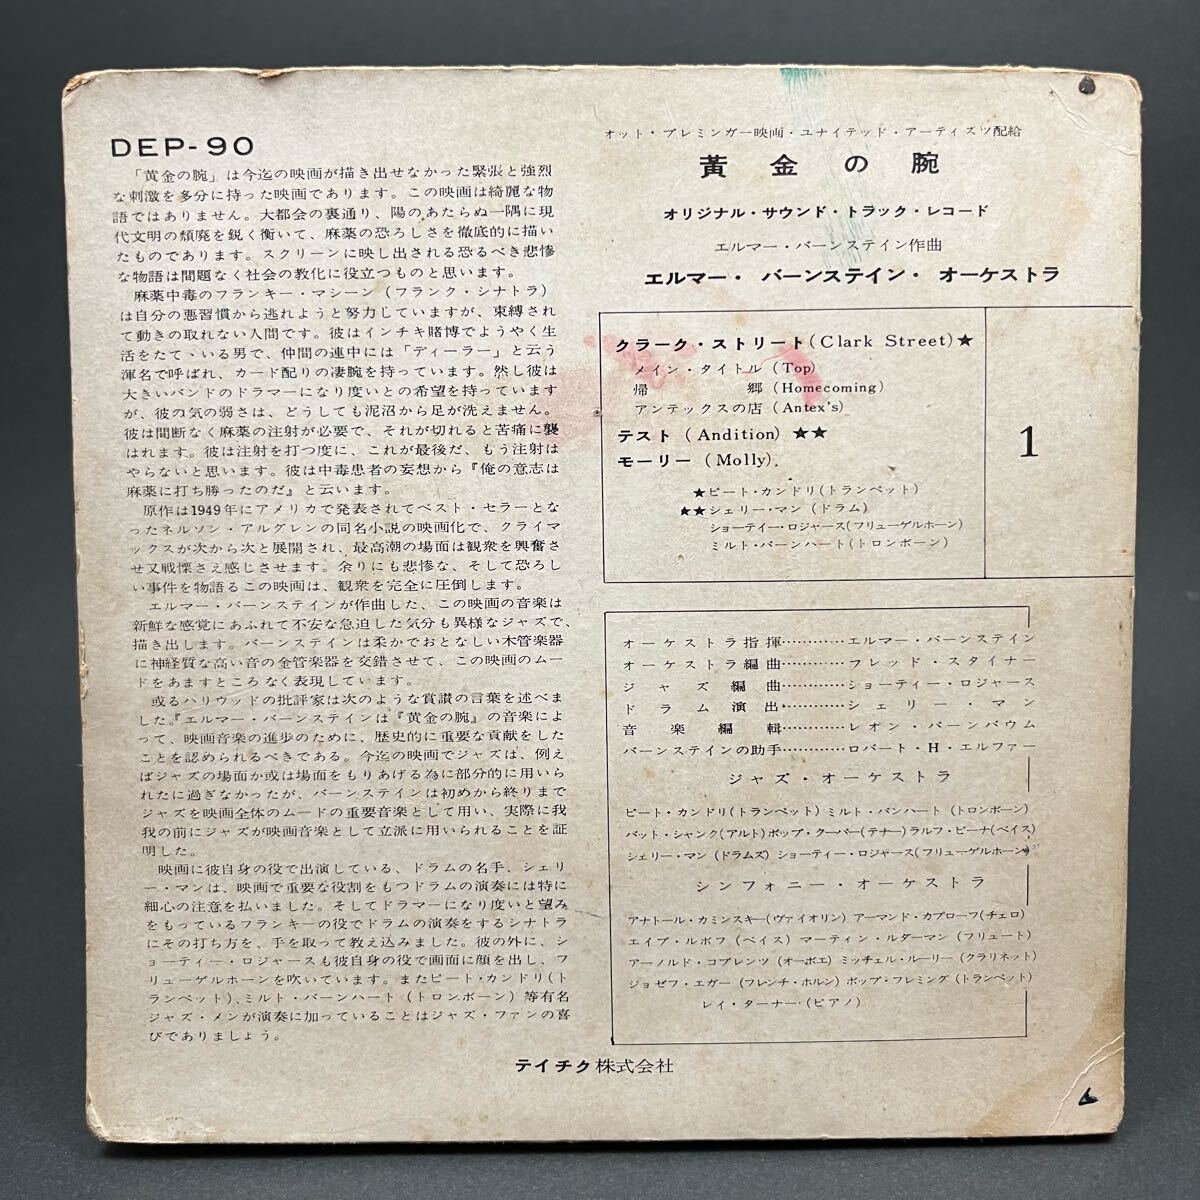 DEP-90
「黄金の腕」は今迄の映画が描き出せなかった緊張と強烈
な刺激を多分に持った映画であります。この映画は綺麗な物
語ではありません。大都会の裏通り、陽のあたらぬ一隅に現
代文明の頽廃を鋭く衝いて、麻薬の恐ろしさを徹底的に描い
たものであります。スクリーンに映し出される恐るべき悲惨
な物語は間題なく社会の教化に役立つものと思います。
麻薬中毒のフランキー・マシーン（フランク・シナトラ）
は自分の悪習慣から逃れようと努力していますが、束縛され
て動きの取れない人間です。彼はインチキ賭博でようやく生
活をたてゝいる男で、仲間の連中には「ディーラー」と云う
渾名で呼ばれ、カード配りの凄腕を持っています。然し彼は
大きいバンドのドラマーになり度いとの希望を持っています
が、彼の気の弱さは、どうしても泥沼から足が洗えません。
彼は間断なく麻薬の注射が必要で、それが切れると苦痛に襲
はれます。彼は注射を打つ度に、これが最後だ、もう注射は
やらないと思います。彼は中毒患者の妄想から『俺の意志は
麻薬に打ち勝ったのだ』と云います。
原作は1949年にアメリカで発表されてベスト・セラーとな
ったネルソン・アルグレンの同名小説の映画化で、クライマ
ックスが次から次と展開され、最高潮の場面は観衆を興奮さ
せ又戦慄さえ感じさせます。余りにも悲惨な、そして恐ろし
い事件を物語るこの映画は、観衆を完全に圧倒します。
エルマー・バーンステインが作曲した、この映画の音楽は
新鮮な感覚にあふれて不安な急迫した気分も異様なジャズで、
描き出します。バーンステインは柔かでおとなしい木管楽器
に神経質な高い音の金管楽器を交錯させて、この映画のムー
ドをあますところなく表現しています。
或るハリウッドの批評家は次のような賞讃の言葉を述べま
した。『エルマー・バーンステインは『黄金の腕』の音楽によ
って、映画音楽の進歩のために、歴史的に重要な貢献をした
ことを認められるべきである。今迄の映画でジャズは、例え
ばジャズの場面か或は場面をもりあげる為に部分的に用いら
れたに過ぎなかったが、バーンステインは初めから終りまで
ジャズを映画全体のムードの重要音楽として用い、実際に我
我の前にジャズが映画音楽として立派に用いられることを証
明した。
映画に彼自身の役で出演している、ドラムの名手、シェリ
ー・マンは、映画で重要な役割をもつドラムの演奏には特に
細心の注意を払いました。そしてドラマーになり度いと望み
をもっているフランキーの役でドラムの演奏をするシナトラ
にその打ち方を、手を取って教え込みました。彼の外に、シ
ョーティー・ロジャースも彼自身の役で画面に顔を出し、フ
リューゲルホーンを吹いています。またピート・カンドリ(ト
ランペット)、ミルト・バーンハート（トロンボーン）等有名
ジャズ・メンが演奏に加っていることはジャズ・ファンの喜
びでありましょう。
オット・プレミンガー映画・ユナイテッド・アーティスツ配給
黄金の腕
オリジナル・サウンド・トラック・レコード
エルマー・バーンステイン作曲
エルマー・バーンステイン・オーケストラ
クラーク・ストリート(Clark Street)★
メイン・タイトル（Top）
帰郷（Homecoming）
アンテックスの店（Antex's）
テスト（Andition）★★
モーリー（Molly）
★ピート・カンドリ(トランペット）
★★シェリー・マン（ドラム）
ショーティー・ロジャース(フリューゲルホーン)
ミルト・バーンハート(トロンボーン)
1
オーケストラ指揮…………エルマー・バーンステイン
オーケストラ編曲…………フレッド・スタイナー
ジャズ編曲…………ショーティー・ロジャース
ドラム演出…………シェリー・マン
音楽編輯…………レオン・バーンバウム
バーンステインの助手…………ロバート・H・エルファー
ジャズ・オーケストラ
ピート・カンドリ(トランペット) ミルト・バンハート（トロンボーン）
バット・シャンク(アルト) ボップ・クーパー(テナー) ラルフ・ピーナ(ベイス)
シェリー・マン（ドラムズ）ショーティー・ロジャース(フリューゲルホーン)
シンフォニー・オーケストラ
アナトール・カミンスキー(ヴァイオリン) アーマンド・カプローフ(チェロ)
エイブ・ルボフ（ベイス）マーティン・ルダーマン（フリュート）
アーノルド・コブレンツ（オーボエ）ミッチェル・ルーリー（クラリネット）
ジョゼフ・エガー（フレンチ・ホルン）ボップ・フレミング（トランペット）
レイ・ターナー・(ピアノ）
テイチク株式会社